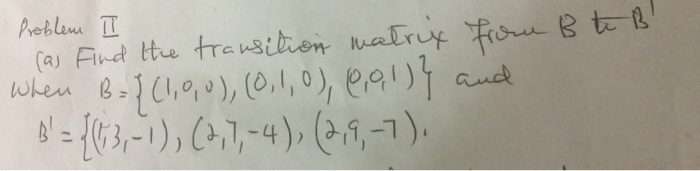 Problem II
(a) Find the transition matrix from B to B'
when B = {(1,0,0), (0,1,0), (0,0,1)} and
B' = {(1,3,-1), (2,7,-4), (2,9,-7).